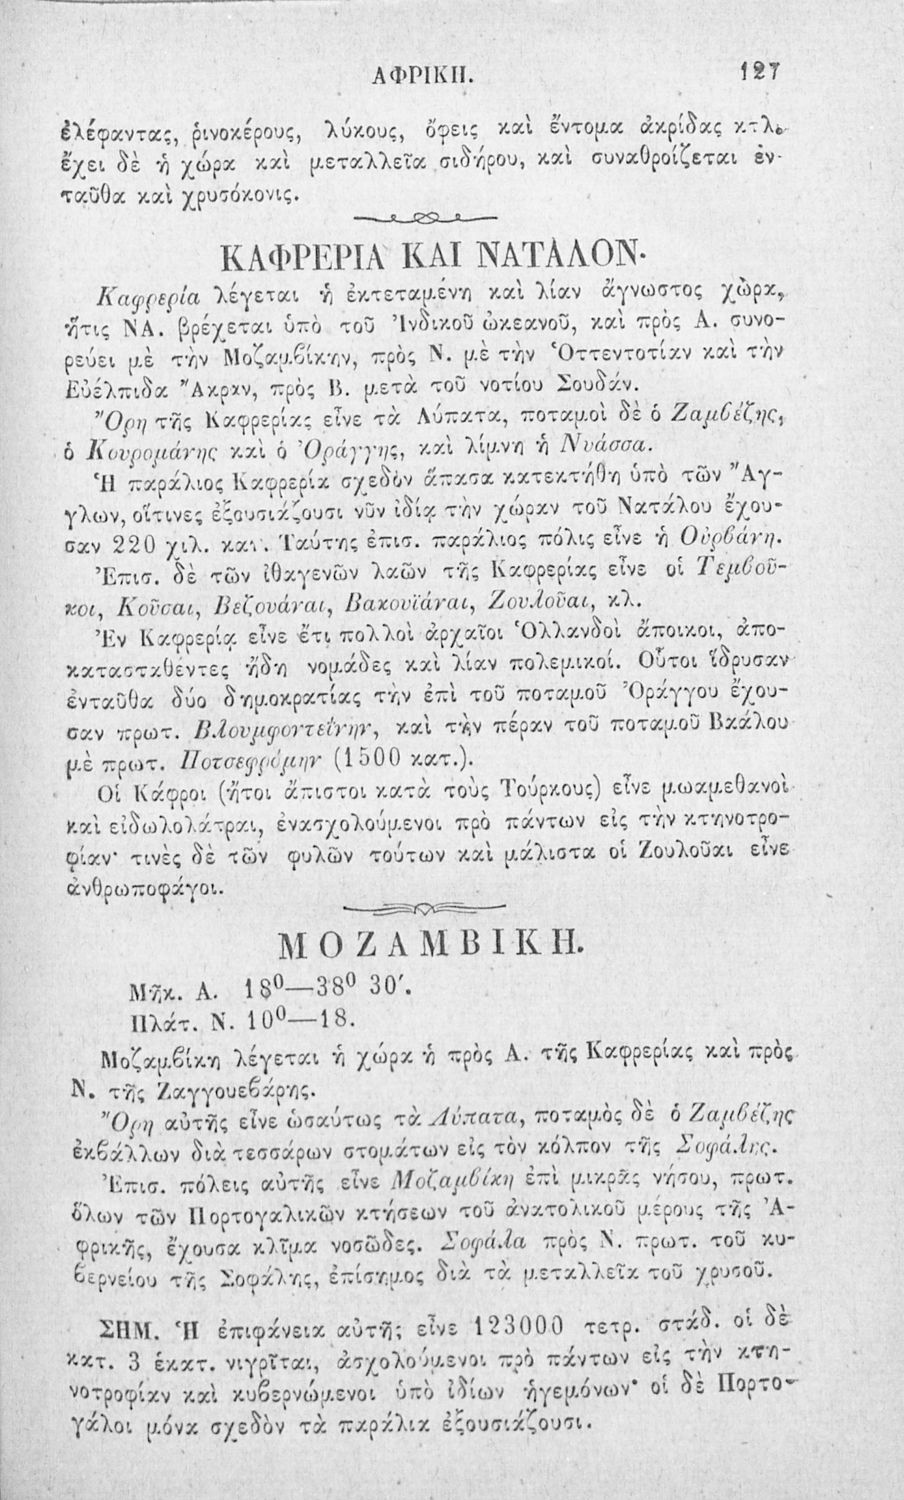 ΑΦΡΙΚΗ. 127
ἐλέφαντας, ῥινοκέρους, λύκους, ὄφεις καὶ ἔντομα ἀκρίδας κτλ.
ἔχει δὲ ἡ χώρα καὶ μεταλλεῖα σιδήρου, καὶ συναθροίζεται ἐν-
ταῦθα καὶ χρυσόκονις.
ΚΑΦΡΕΡΙΑ ΚΑΙ ΝΑΤΑΛΟΝ.
Καφρερία λέγεται ἡ ἐκτεταμένη καὶ λίαν ἄγνωστος χώρα,
ἥτις ΝΑ. βρέχεται ὑπὸ τοῦ Ἰνδικοῦ ὠκεανοῦ, καὶ πρὸς Α. συνο-
ρεύει μὲ τὴν Μοζαμβίκην, πρὸς Ν. μὲ τὴν Ὀττεντοτίαν καὶ τὴν
Εὐέλπιδα Ἄκραν, πρὸς Β. μετὰ τοῦ νοτίου Σουδάν.
Ὄρη τῆς Καφρερίας εἶνε τὰ Λύπατα, ποταμοὶ δὲ ὁ Ζαμβέζης,
ὁ Κουρομάνης καὶ ὁ Ὀράγγης, καὶ λίμνη ἡ Νυάσσα.
Ἡ παράλιος Καφρερία σχεδὸν ἅπασα κατεκτήθη ὑπὸ τῶν Ἄγ-
γλων, οἵτινες ἐξουσιάζουσι νῦν ἰδίᾳ τὴν χώραν τοῦ Νατάλου ἔχου-
σαν 220 χιλ. κατ. Ταύτης ἐπισ. παράλιος πόλις εἶνε ἡ Οὐρβάνη.
Ἐπισ. δὲ τῶν ἰθαγενῶν λαῶν τῆς Καφρερίας εἶνε οἱ Τεμβοῦ-
κοι, Κοῦσαι, Βεζουάναι, Βακουϊάναι, Ζουλοῦαι, κλ.
Ἐν Καφρερίᾳ εἶνε ἔτι πολλοὶ ἀρχαῖοι Ὁλλανδοὶ ἄποικοι, ἀπο-
κατασταθέντες ἤδη νομάδες καὶ λίαν πολεμικοί. Οὗτοι ἵδρυσαν
ἐνταῦθα δύο δημοκρατίας τὴν ἐπὶ τοῦ ποταμοῦ Ὀράγγου ἔχου-
σαν πρωτ. Βλουμφοντεΐνην, καὶ τὴν πέραν τοῦ ποταμοῦ Βαάλου
μὲ πρωτ. Ποτσεφρόμην (1500 κατ.).
Οἱ Κάφροι (ἤτοι ἄπιστοι κατὰ τοὺς Τούρκους) εἶνε μωαμεθανοὶ
καὶ εἰδωλολάτραι, ἐνασχολούμενοι πρὸ πάντων εἰς τὴν κτηνοτρο-
φίαν· τινὲς δὲ τῶν φυλῶν τούτων καὶ μάλιστα οἱ Ζουλοῦαι εἶνε
ἀνθρωποφάγοι.
ΜΟΖΑΜΒΙΚΗ.
Μῆκ. Α. 18⁰—38⁰ 30′.
Πλάτ. Ν. 10⁰—18.
Μοζαμβίκη λέγεται ἡ χώρα ἡ πρὸς Α. τῆς Καφρερίας καὶ πρὸς
Ν. τῆς Ζαγγουεβάρης.
Ὄρη αὐτῆς εἶνε ὡσαύτως τὰ Λύπατα, ποταμὸς δὲ ὁ Ζαμβέζης
ἐκβάλλων διὰ τεσσάρων στομάτων εἰς τὸν κόλπον τῆς Σοφάλης.
Ἐπισ. πόλεις αὐτῆς εἶνε Μοζαμβίκη ἐπὶ μικρᾶς νήσου, πρωτ.
ὅλων τῶν Πορτογαλικῶν κτήσεων τοῦ ἀνατολικοῦ μέρους τῆς Ἀ-
φρικῆς, ἔχουσα κλῖμα νοσῶδες. Σοφάλα πρὸς Ν. πρωτ. τοῦ κυ-
βερνείου τῆς Σοφάλης, ἐπίσημος διὰ τὰ μεταλλεῖα τοῦ χρυσοῦ.
ΣΗΜ. Ἡ ἐπιφάνεια αὐτῆς εἶνε 123000 τετρ. στάδ. οἱ δὲ
κατ. 3 ἑκατ. νιγρῖται, ἀσχολούμενοι πρὸ πάντων εἰς τὴν κτη-
νοτροφίαν καὶ κυβερνώμενοι ὑπὸ ἰδίων ἡγεμόνων· οἱ δὲ Πορτο-
γάλοι μόνα σχεδὸν τὰ παράλια ἐξουσιάζουσι.